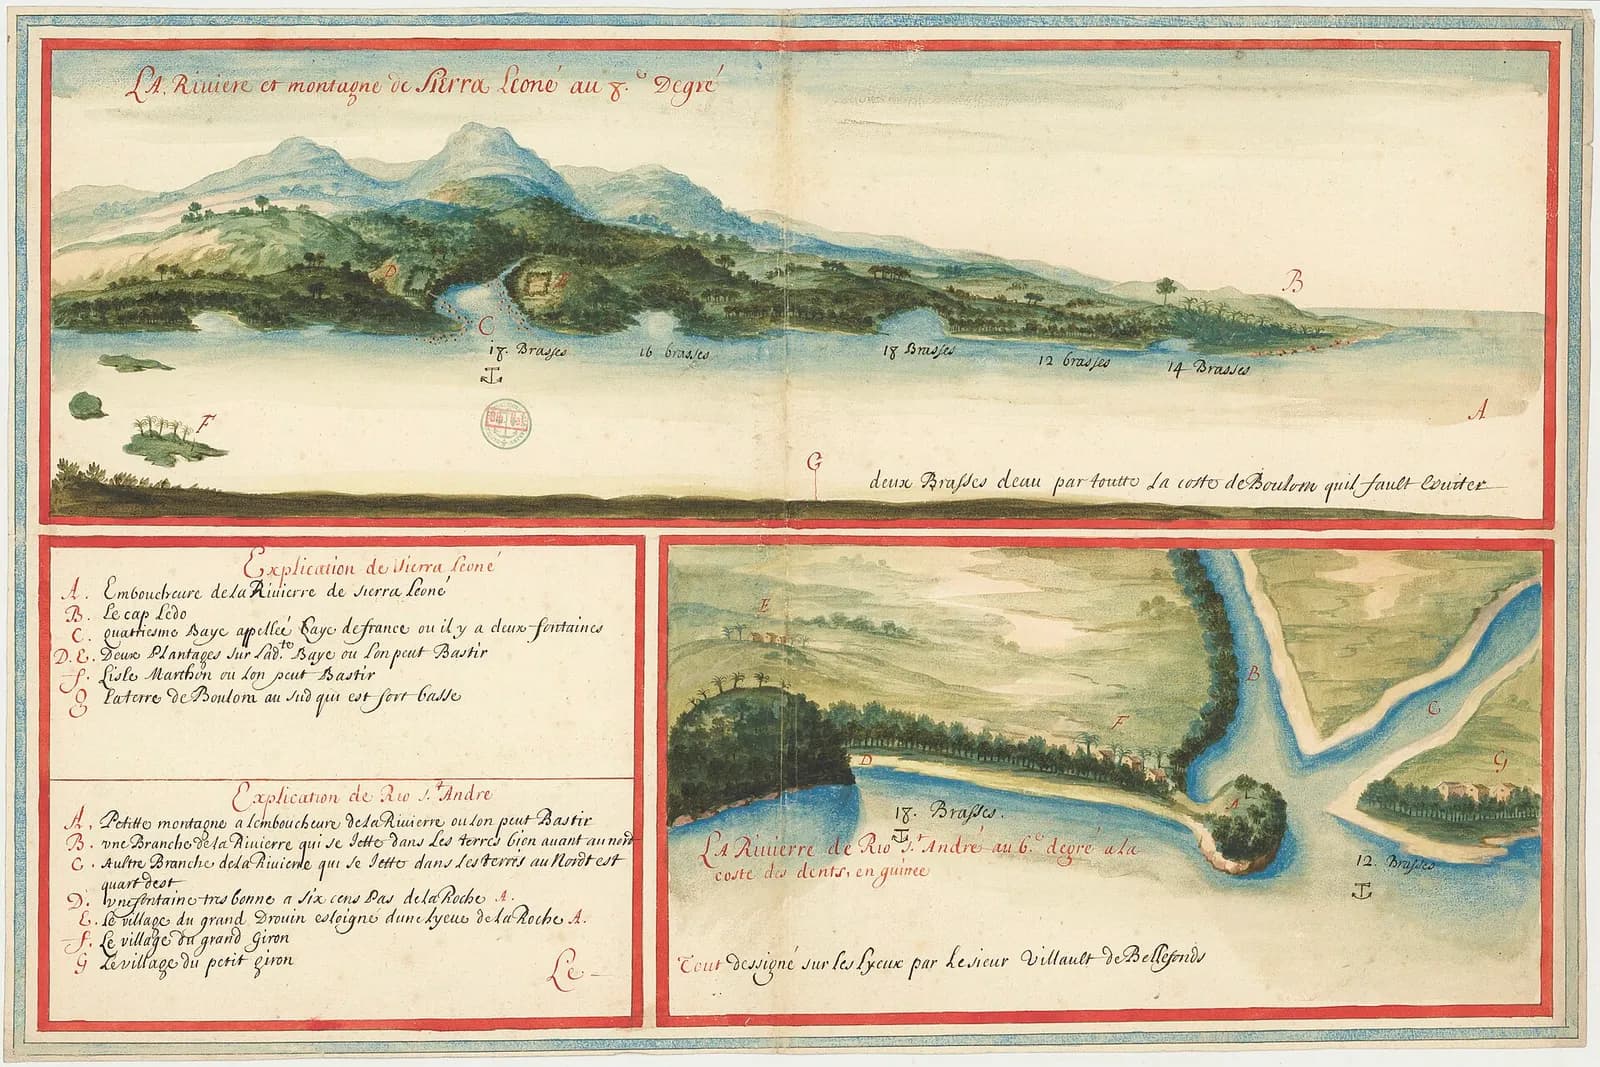 LA Riuiere et montagne de Sierra Leoné au 8.e Degré
B
D
E
C
18. Brasses
16 brasses
18 Brasses
12 brasses
14 Brasses
A
F
G
deux Brasses deau par toutte La coste de Boulom quil fault Euiter
Explication de Sierra Leoné
A. Emboucheure de la Riuierre de sierra Leoné
B. Le cap Ledo
C. quatriesme Baye appelleé Baye de france ou il y a deux fontaines
D. E. Deux Plantages sur Lad.te Baye ou Lon peut Bastir
f. Lisle Marthon ou Lon peut Bastir
g La terre de Boulom au sud qui est fort basse
Explication de Rio s.t Andre
A. Petitte montagne a lemboucheure de la Riuierre ou lon peut Bastir
B. vne Branche de la Riuierre qui se Jette dans Les terres bien auant au nord
C. Aultre Branche de la Riuiere qui se Jette dans Les terres au Nordt est
quart dest
D. vne fontaine tres bonne a six cens Pas de la Roche A.
E. Le village du grand Drouin esloigné dune Lyeue de la Roche A.
f. Le village du grand Giron
G Le village du petit giron
Le
E
B
C
F
G
D
A
18. Brasses.
12. Brasses
LA Riuierre de Rio s.t André au 6.e degré a la
coste des dents, en guinee
Tout dessigné sur les Lyeux par Le sieur Villault de Bellefonds